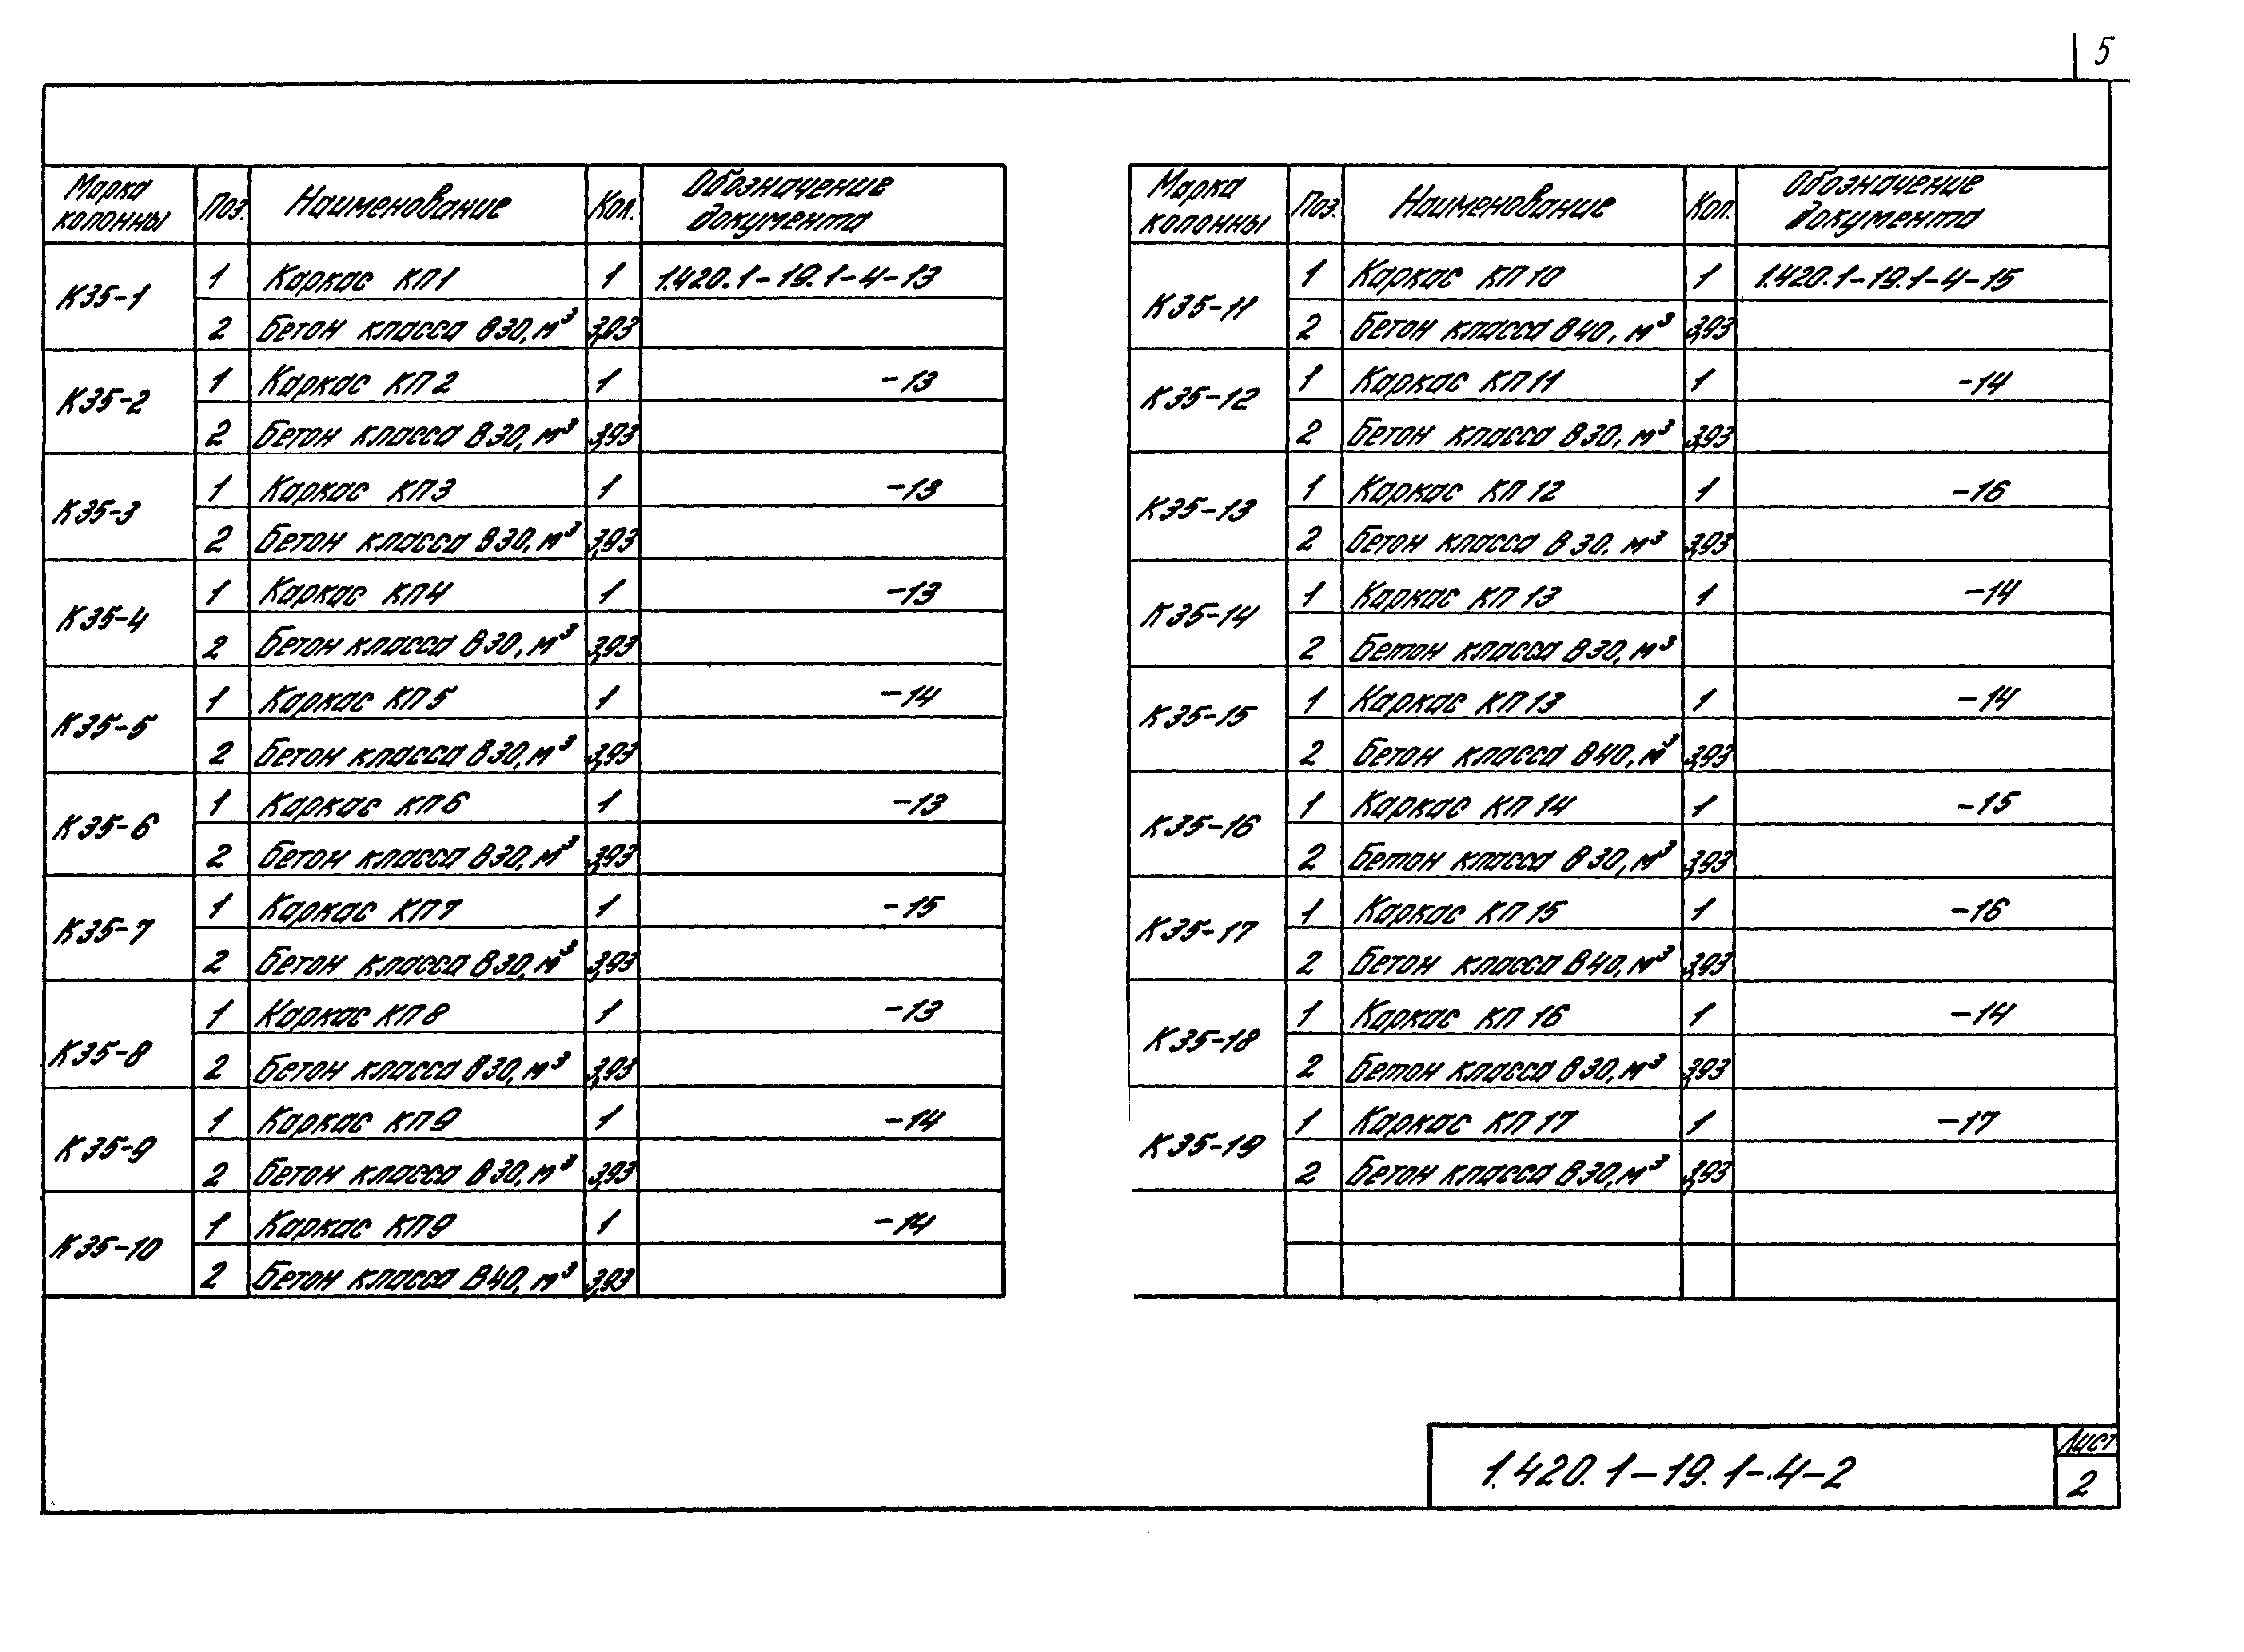 5
Марка колонны Поз. Наименование Кол. Обозначение документа
К35-1 1 Каркас КП1 1 1.420.1-19.1-4-13
2 Бетон класса В30, м³ 3,93
К35-2 1 Каркас КП2 1 -13
2 Бетон класса В30, м³ 3,93
К35-3 1 Каркас КП3 1 -13
2 Бетон класса В30, м³ 3,93
К35-4 1 Каркас КП4 1 -13
2 Бетон класса В30, м³ 3,93
К35-5 1 Каркас КП5 1 -14
2 Бетон класса В30, м³ 3,93
К35-6 1 Каркас КП6 1 -13
2 Бетон класса В30, м³ 3,93
К35-7 1 Каркас КП7 1 -15
2 Бетон класса В30, м³ 3,93
К35-8 1 Каркас КП8 1 -13
2 Бетон класса В30, м³ 3,93
К35-9 1 Каркас КП9 1 -14
2 Бетон класса В30, м³ 3,93
К35-10 1 Каркас КП9 1 -14
2 Бетон класса В40, м³ 3,93
Марка колонны Поз. Наименование Кол. Обозначение документа
К35-11 1 Каркас КП10 1 1.420.1-19.1-4-15
2 Бетон класса В40, м³ 3,93
К35-12 1 Каркас КП11 1 -14
2 Бетон класса В30, м³ 3,93
К35-13 1 Каркас КП12 1 -16
2 Бетон класса В30. м³ 3,93
К35-14 1 Каркас КП13 1 -14
2 Бетон класса В30, м³
К35-15 1 Каркас КП13 1 -14
2 Бетон класса В40, м³ 3,93
К35-16 1 Каркас КП14 1 -15
2 Бетон класса В30, м³ 3,93
К35-17 1 Каркас КП15 1 -16
2 Бетон класса В40, м³ 3,93
К35-18 1 Каркас КП16 1 -14
2 Бетон класса В30, м³ 3,93
К35-19 1 Каркас КП17 1 -17
2 Бетон класса В30, м³ 3,93
1.420.1-19.1-4-2
Лист
2